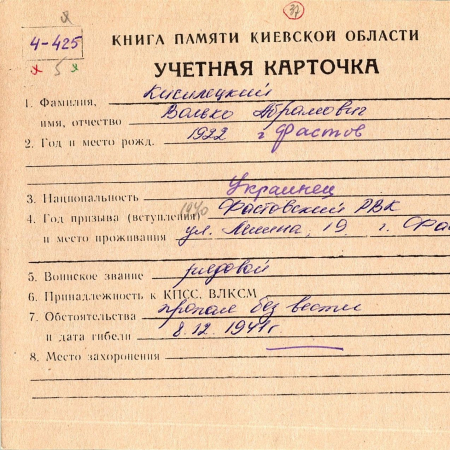 37
4-425
5
КНИГА ПАМЯТИ КИЕВСКОЙ ОБЛАСТИ
УЧЕТНАЯ КАРТОЧКА
1. Фамилия, Кисилецкий
имя, отчество Васько Абрамович
2. Год и место рожд. 1922 г Фастов
3. Национальность Украинец
4. Год призыва (вступления) 1940 Фастовский РВК
и место проживания ул. Ленина, 19 г.
5. Воинское звание рядовой
6. Принадлежность к КПСС, ВЛКСМ
7. Обстоятельства пропал без вести
и дата гибели 8.12.1941г
8. Место захоронения